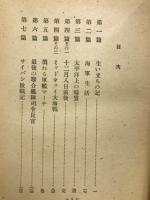 目次
第一篇 生いまちの記
第二篇 海軍生活
第三篇 太平洋上の暗雲
第四篇 その一 十二月八日前後
第四篇 その二 ミッドウェイ大海戦
第五篇 憐れる軍艦マーチ
第六篇 最後の聯合艦隊司令長官
第七篇 サイパン敗戦記